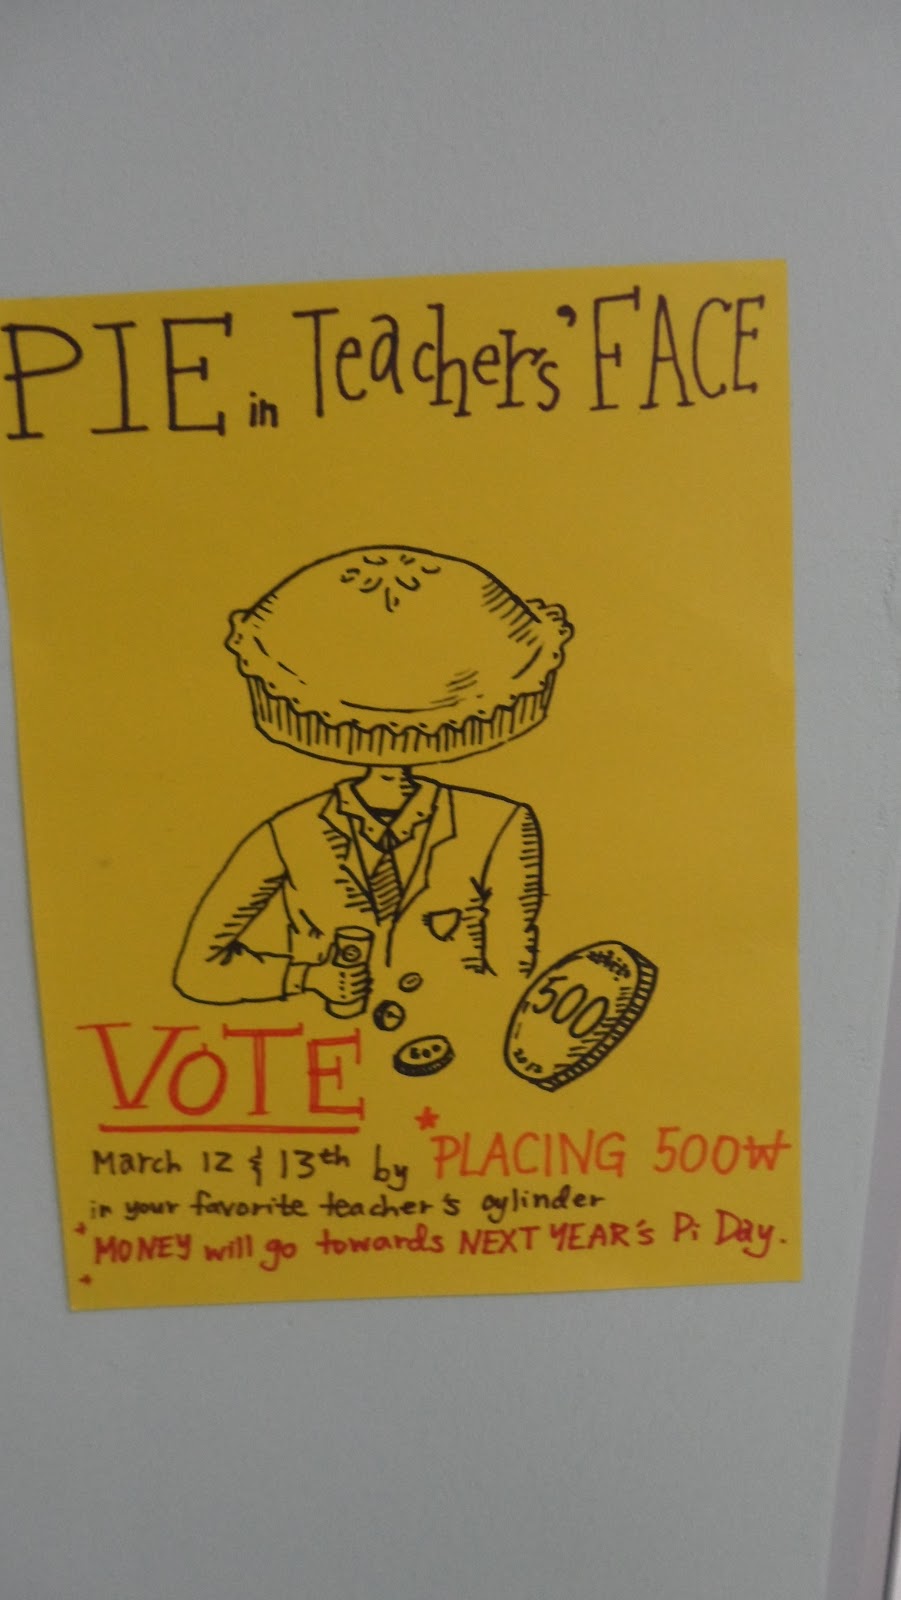 PIE in Teachers' FACE
500
500
2012
VOTE
*PLACING 500₩
March 12 & 13th by
in your favorite teacher's cylinder
*MONEY will go towards NEXT YEAR's Pi Day.
*